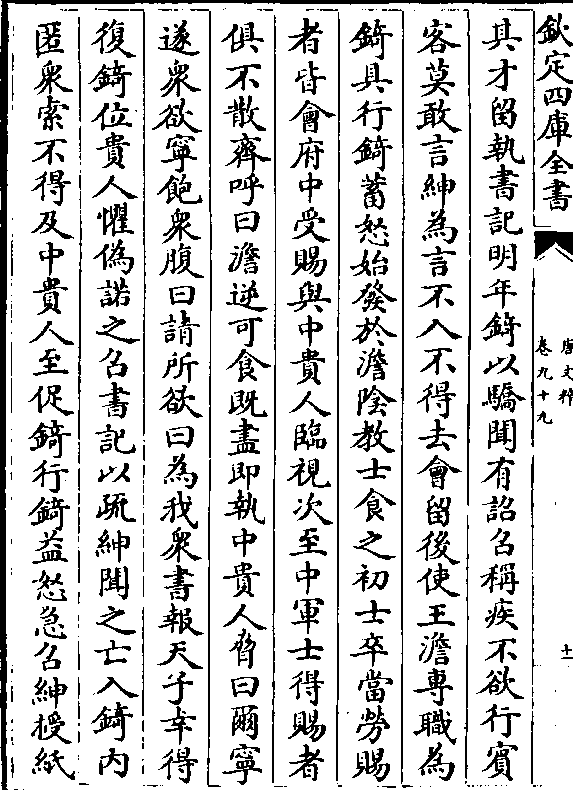 欽定四庫全書
唐文粹
卷九十九
十一
其才留執書記明年錡以驕聞有詔召稱疾不欲行賓
客莫敢言紳為言不入不得去會留後使王澹專職為
錡具行錡蓄怒始發於澹陰教士食之初士卒當勞賜
者皆會府中受賜與中貴人臨視次至中軍士得賜者
俱不散齊呼曰澹逆可食既盡即執中貴人脅曰爾寧
遂衆欲寧飽衆腹曰請所欲曰為我衆書報天子幸得
復錡位貴人懼偽諾之召書記以疏紳聞之亡入錡内
匿衆索不得及中貴人至促錡行錡益怒急召紳授紙